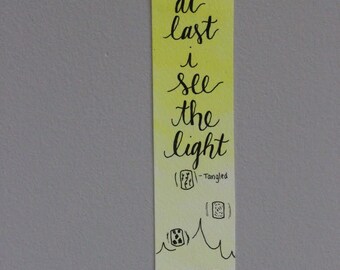 at
last
i
see
the
light
- Tangled